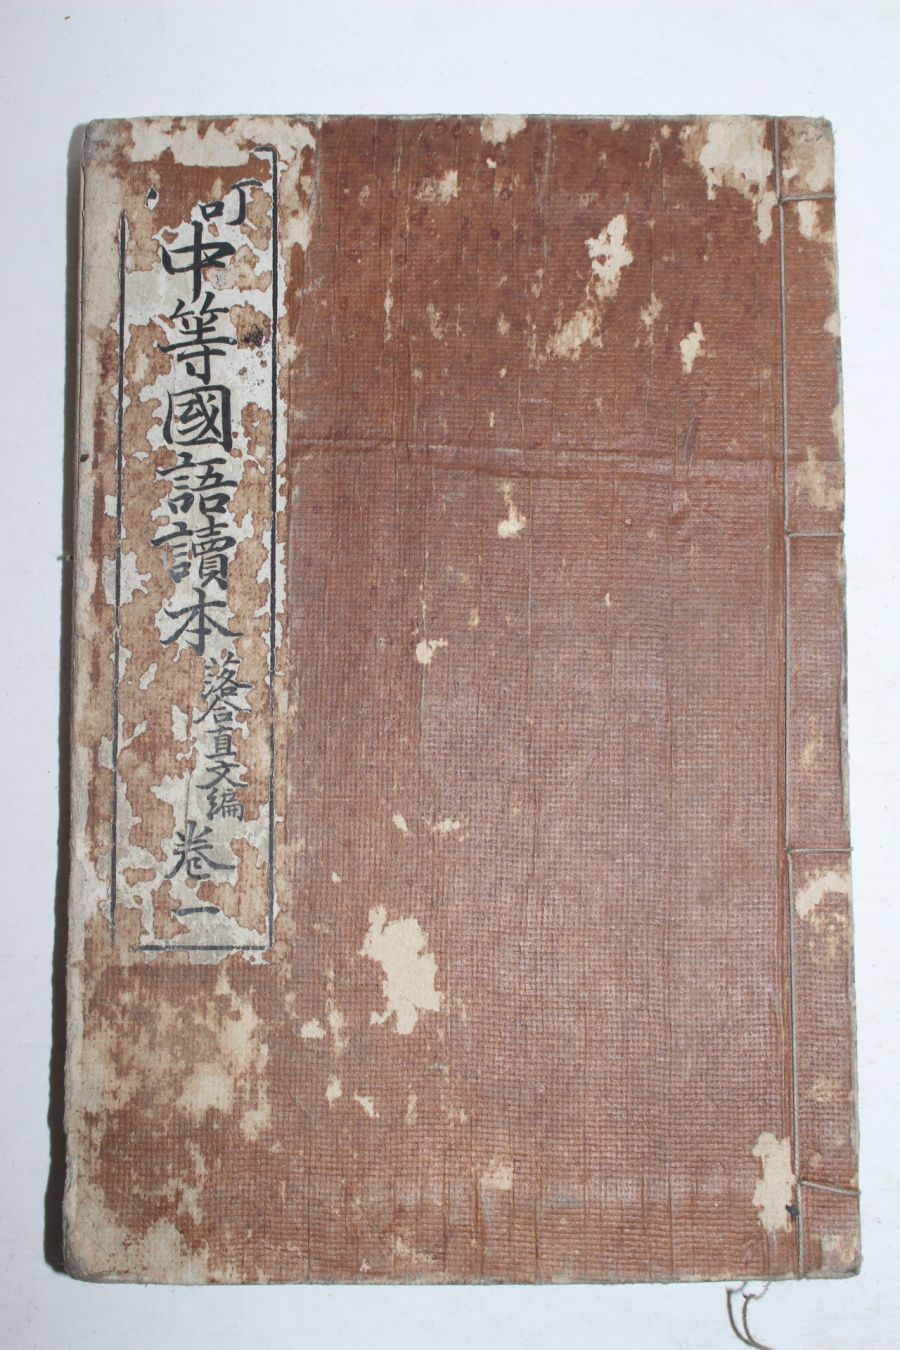 中等國語讀本
落合直文編
卷一